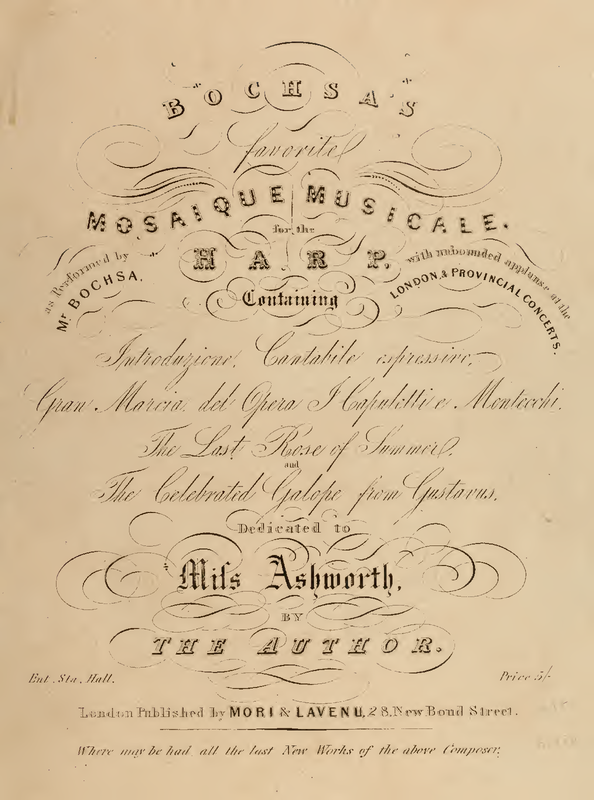 BOCHSA'S
favorite
MOSAIQUE MUSICALE.
for the
HARP.
as Performed by
Mr. BOCHSA.
with unbounded applause at the
LONDON, & PROVINCIAL CONCERTS.
Containing
Introduzione, Cantabile espressivo,
Gran Marcia del Opera I Capuletti e Montecchi.
The Last Rose of Summer.
and
The Celebrated Galope from Gustavus.
Dedicated to
Miſs Ashworth,
BY
THE AUTHOR.
Ent. Sta. Hall.
Price 5/-
London Published by MORI & LAVENU, 28, New Bond Street.
Where may be had all the last New Works of the above Composer.